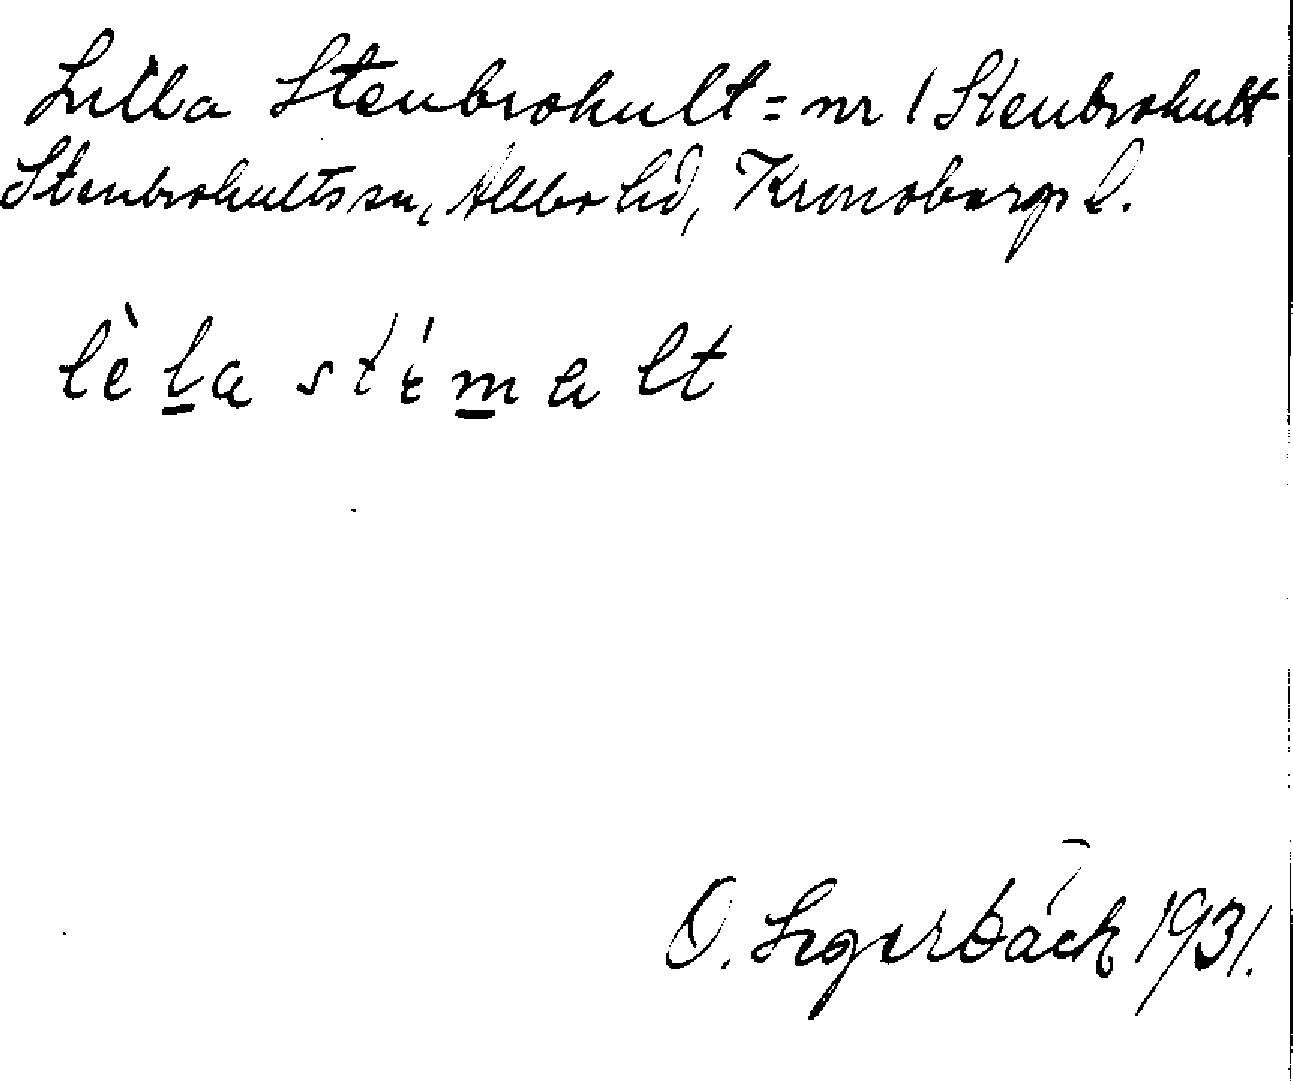 Lilla Stenbrohult = nr 1 Stenbrohult
Stenbrohults sn, Allbo hd, Kronobergs l.
lèla sté́malt
O. Segerbäck 1931.